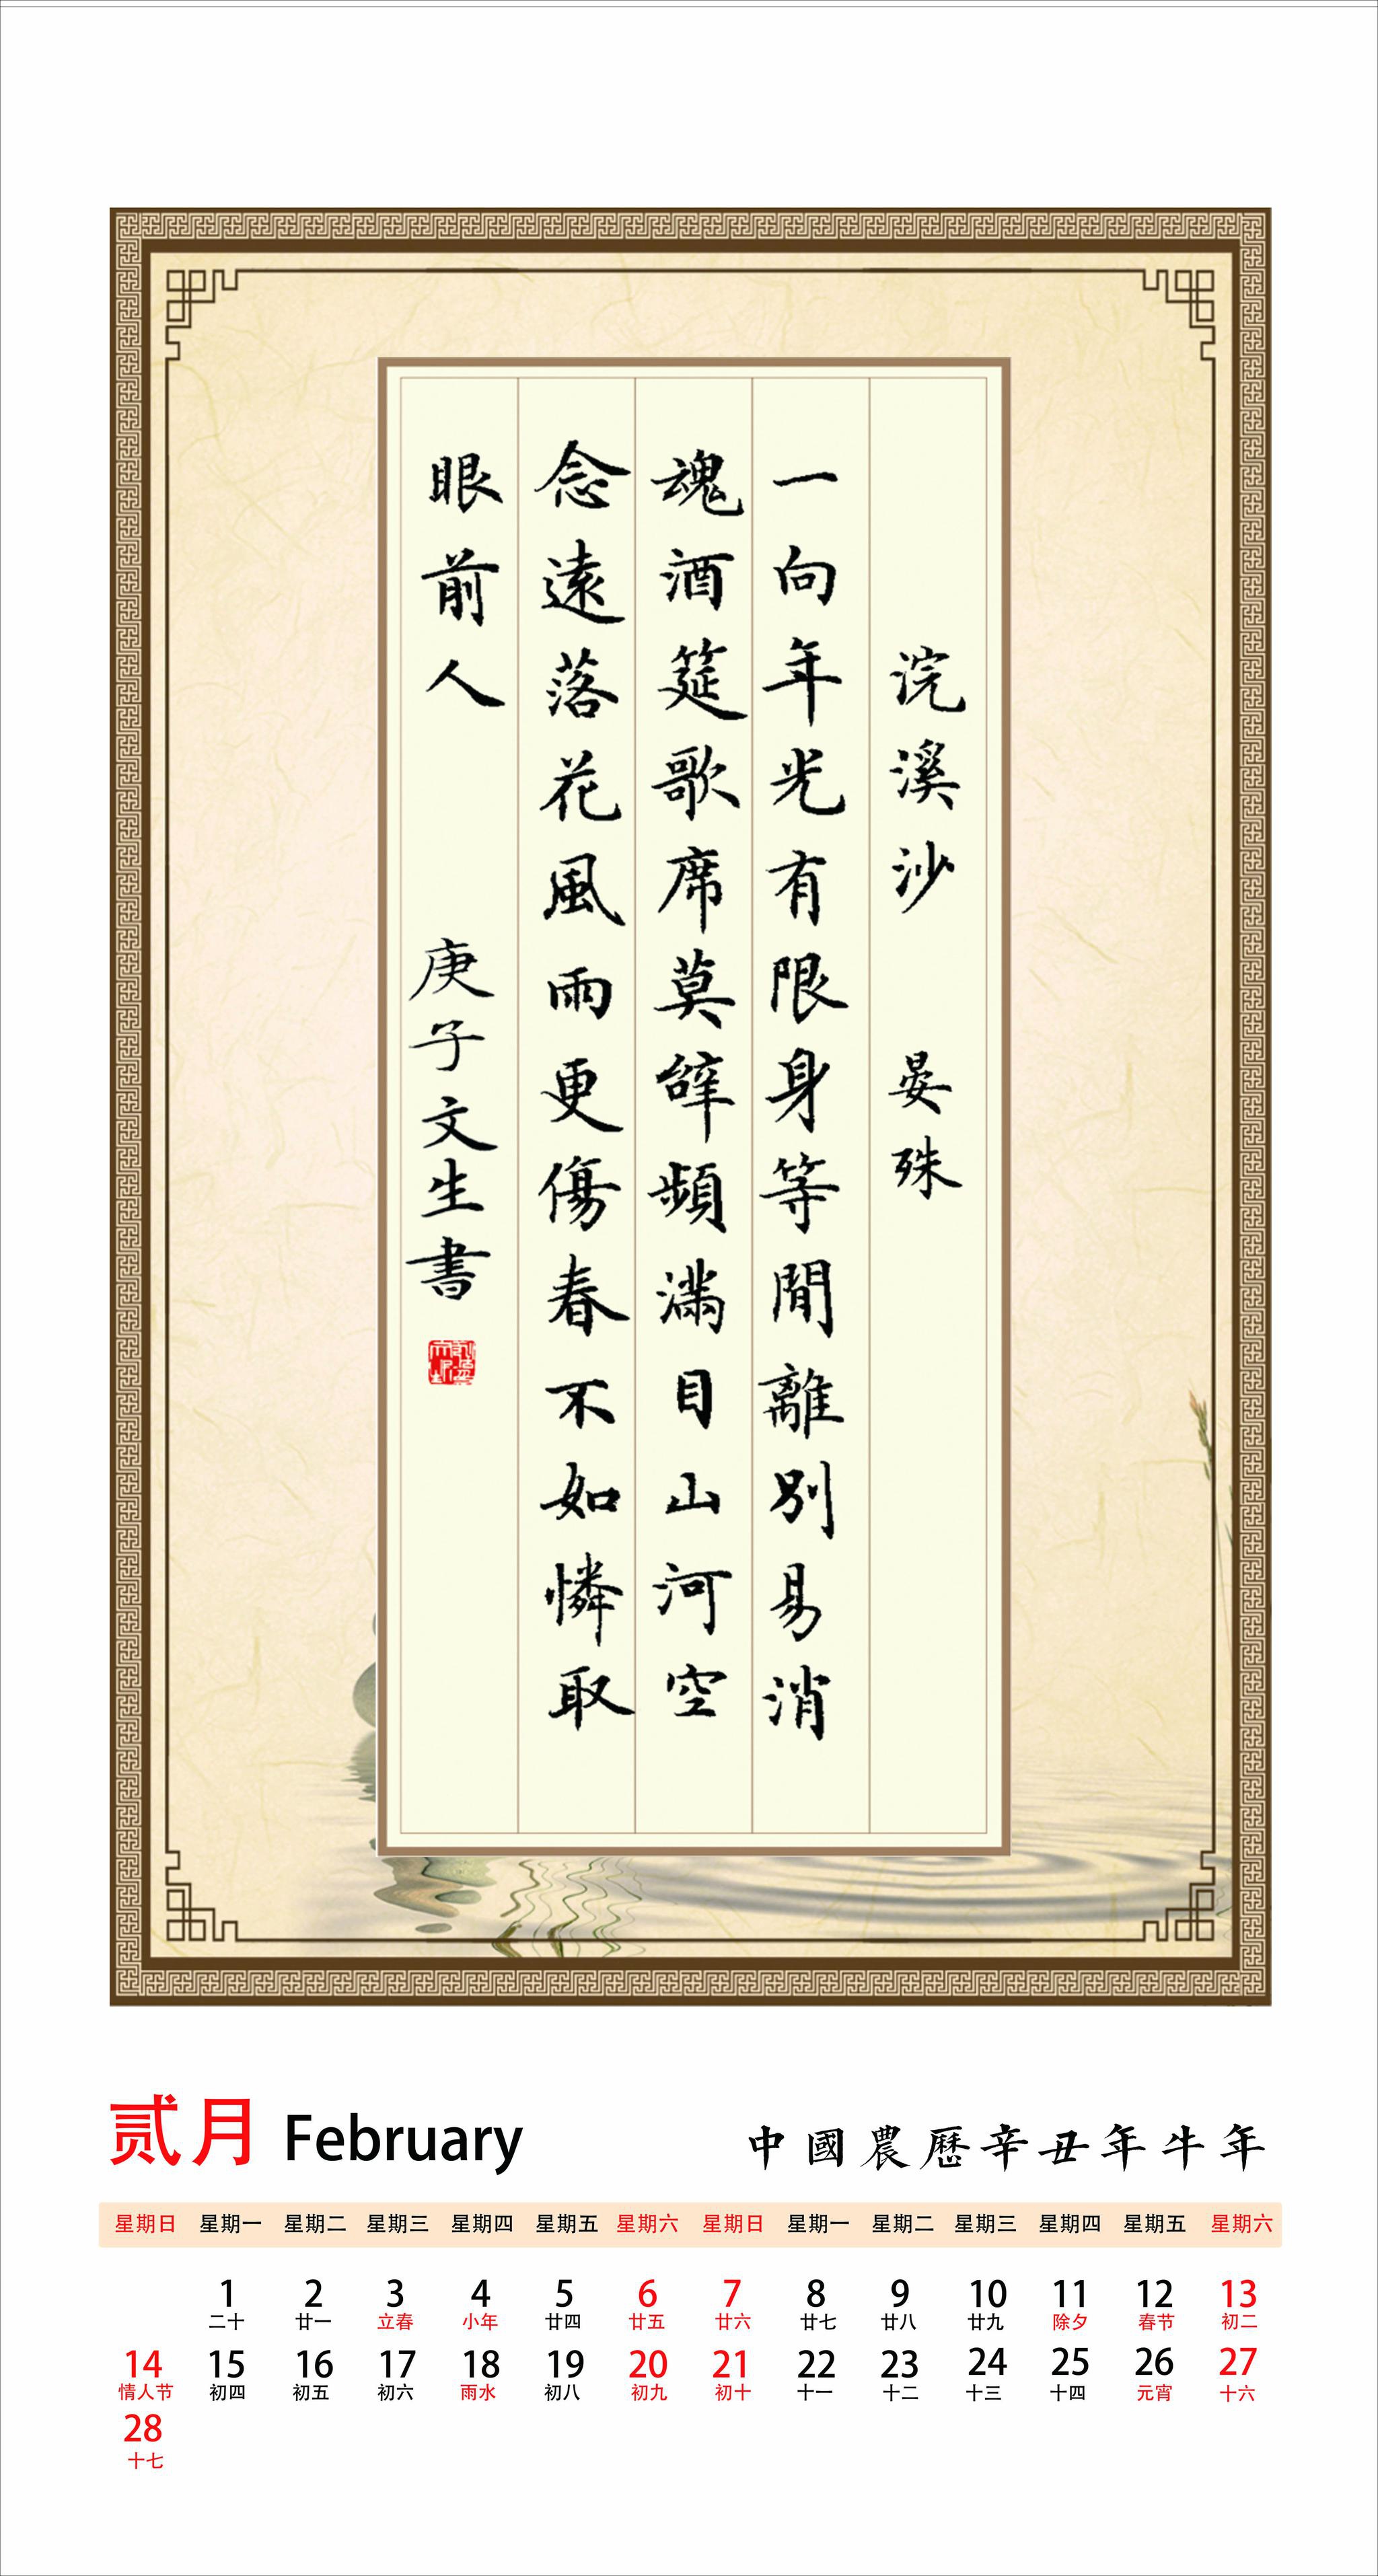 浣溪沙 晏殊
一向年光有限身等閒離別易消
魂酒筵歌席莫辝頻滿目山河空
念遠落花風雨更傷春不如憐取
眼前人 庚子文生書
贰月 February
中國農曆辛丑年牛年
星期日 星期一 星期二 星期三 星期四 星期五 星期六 星期日 星期一 星期二 星期三 星期四 星期五 星期六
1 2 3 4 5 6 7 8 9 10 11 12 13
二十 廿一 立春 小年 廿四 廿五 廿六 廿七 廿八 廿九 除夕 春节 初二
14 15 16 17 18 19 20 21 22 23 24 25 26 27
情人节 初四 初五 初六 雨水 初八 初九 初十 十一 十二 十三 十四 元宵 十六
28
十七